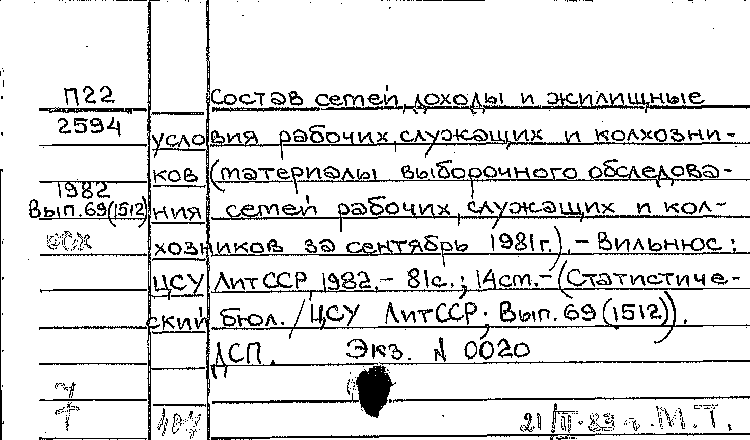 П22 Состав сетей, доходы и жилищные
2594 условия рабочих, служащих и колхозни-
ков (материалы выборочного обследова-
1982
Вып. 69(1512) ния сетей рабочих, служащих и кол-
хозников за сентябрь 1981г.). - Вильнюс:
ЦСУ ЛитССР, 1982. - 81с.; 14см. - (Статистиче-
ский бюл. / ЦСУ ЛитССР; Вып. 69 (1512)).
ДСП. Экз. N 0020
21/III-83 г. М.Т.